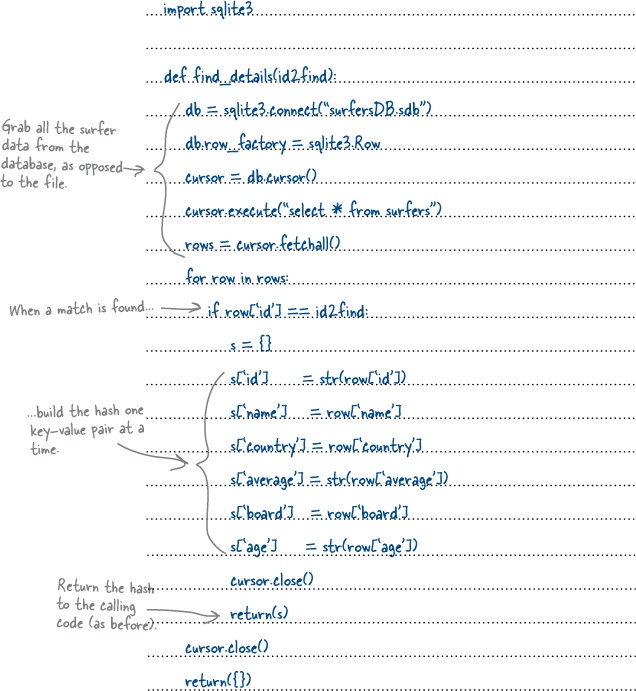 import sqlite3
def find_details(id2find):
Grab all the surfer
data from the
database, as opposed
to the file.
db = sqlite3.connect("surfersDB.sdb")
db.row_factory = sqlite3.Row
cursor = db.cursor()
cursor.execute("select * from surfers")
rows = cursor.fetchall()
for row in rows:
When a match is found...
if row['id'] == id2find:
s = {}
...build the hash one
key-value pair at a
time.
s['id'] = str(row['id'])
s['name'] = row['name']
s['country'] = row['country']
s['average'] = str(row['average'])
s['board'] = row['board']
s['age'] = str(row['age'])
cursor.close()
Return the hash
to the calling
code (as before).
return(s)
cursor.close()
return({})